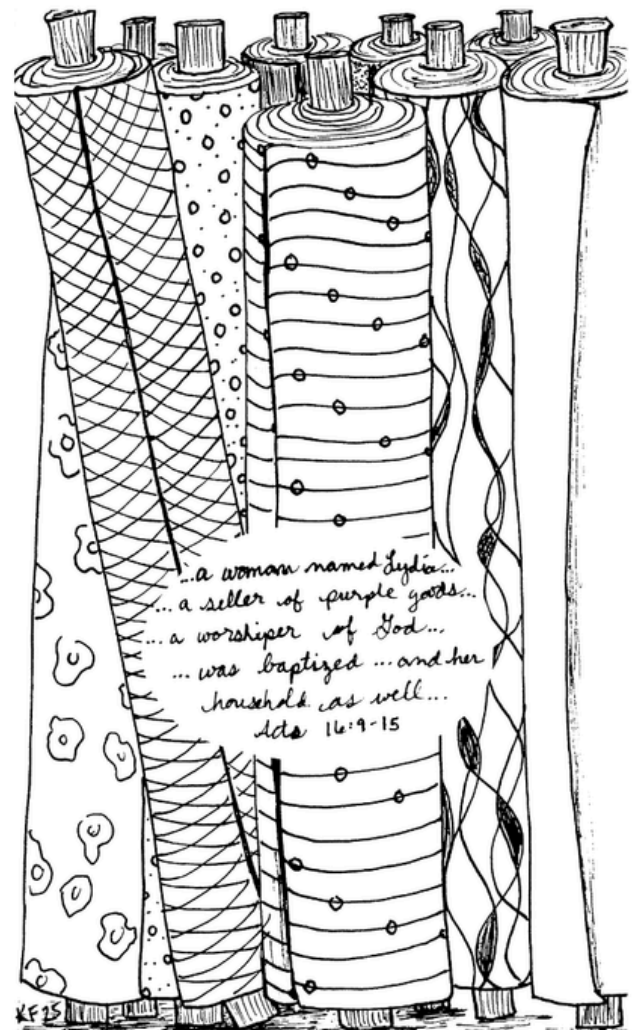 ...a woman named Lydia...
...a seller of purple goods...
...a worshiper of God...
...was baptized...and her
household as well...
Acts 16:9-15
KF25